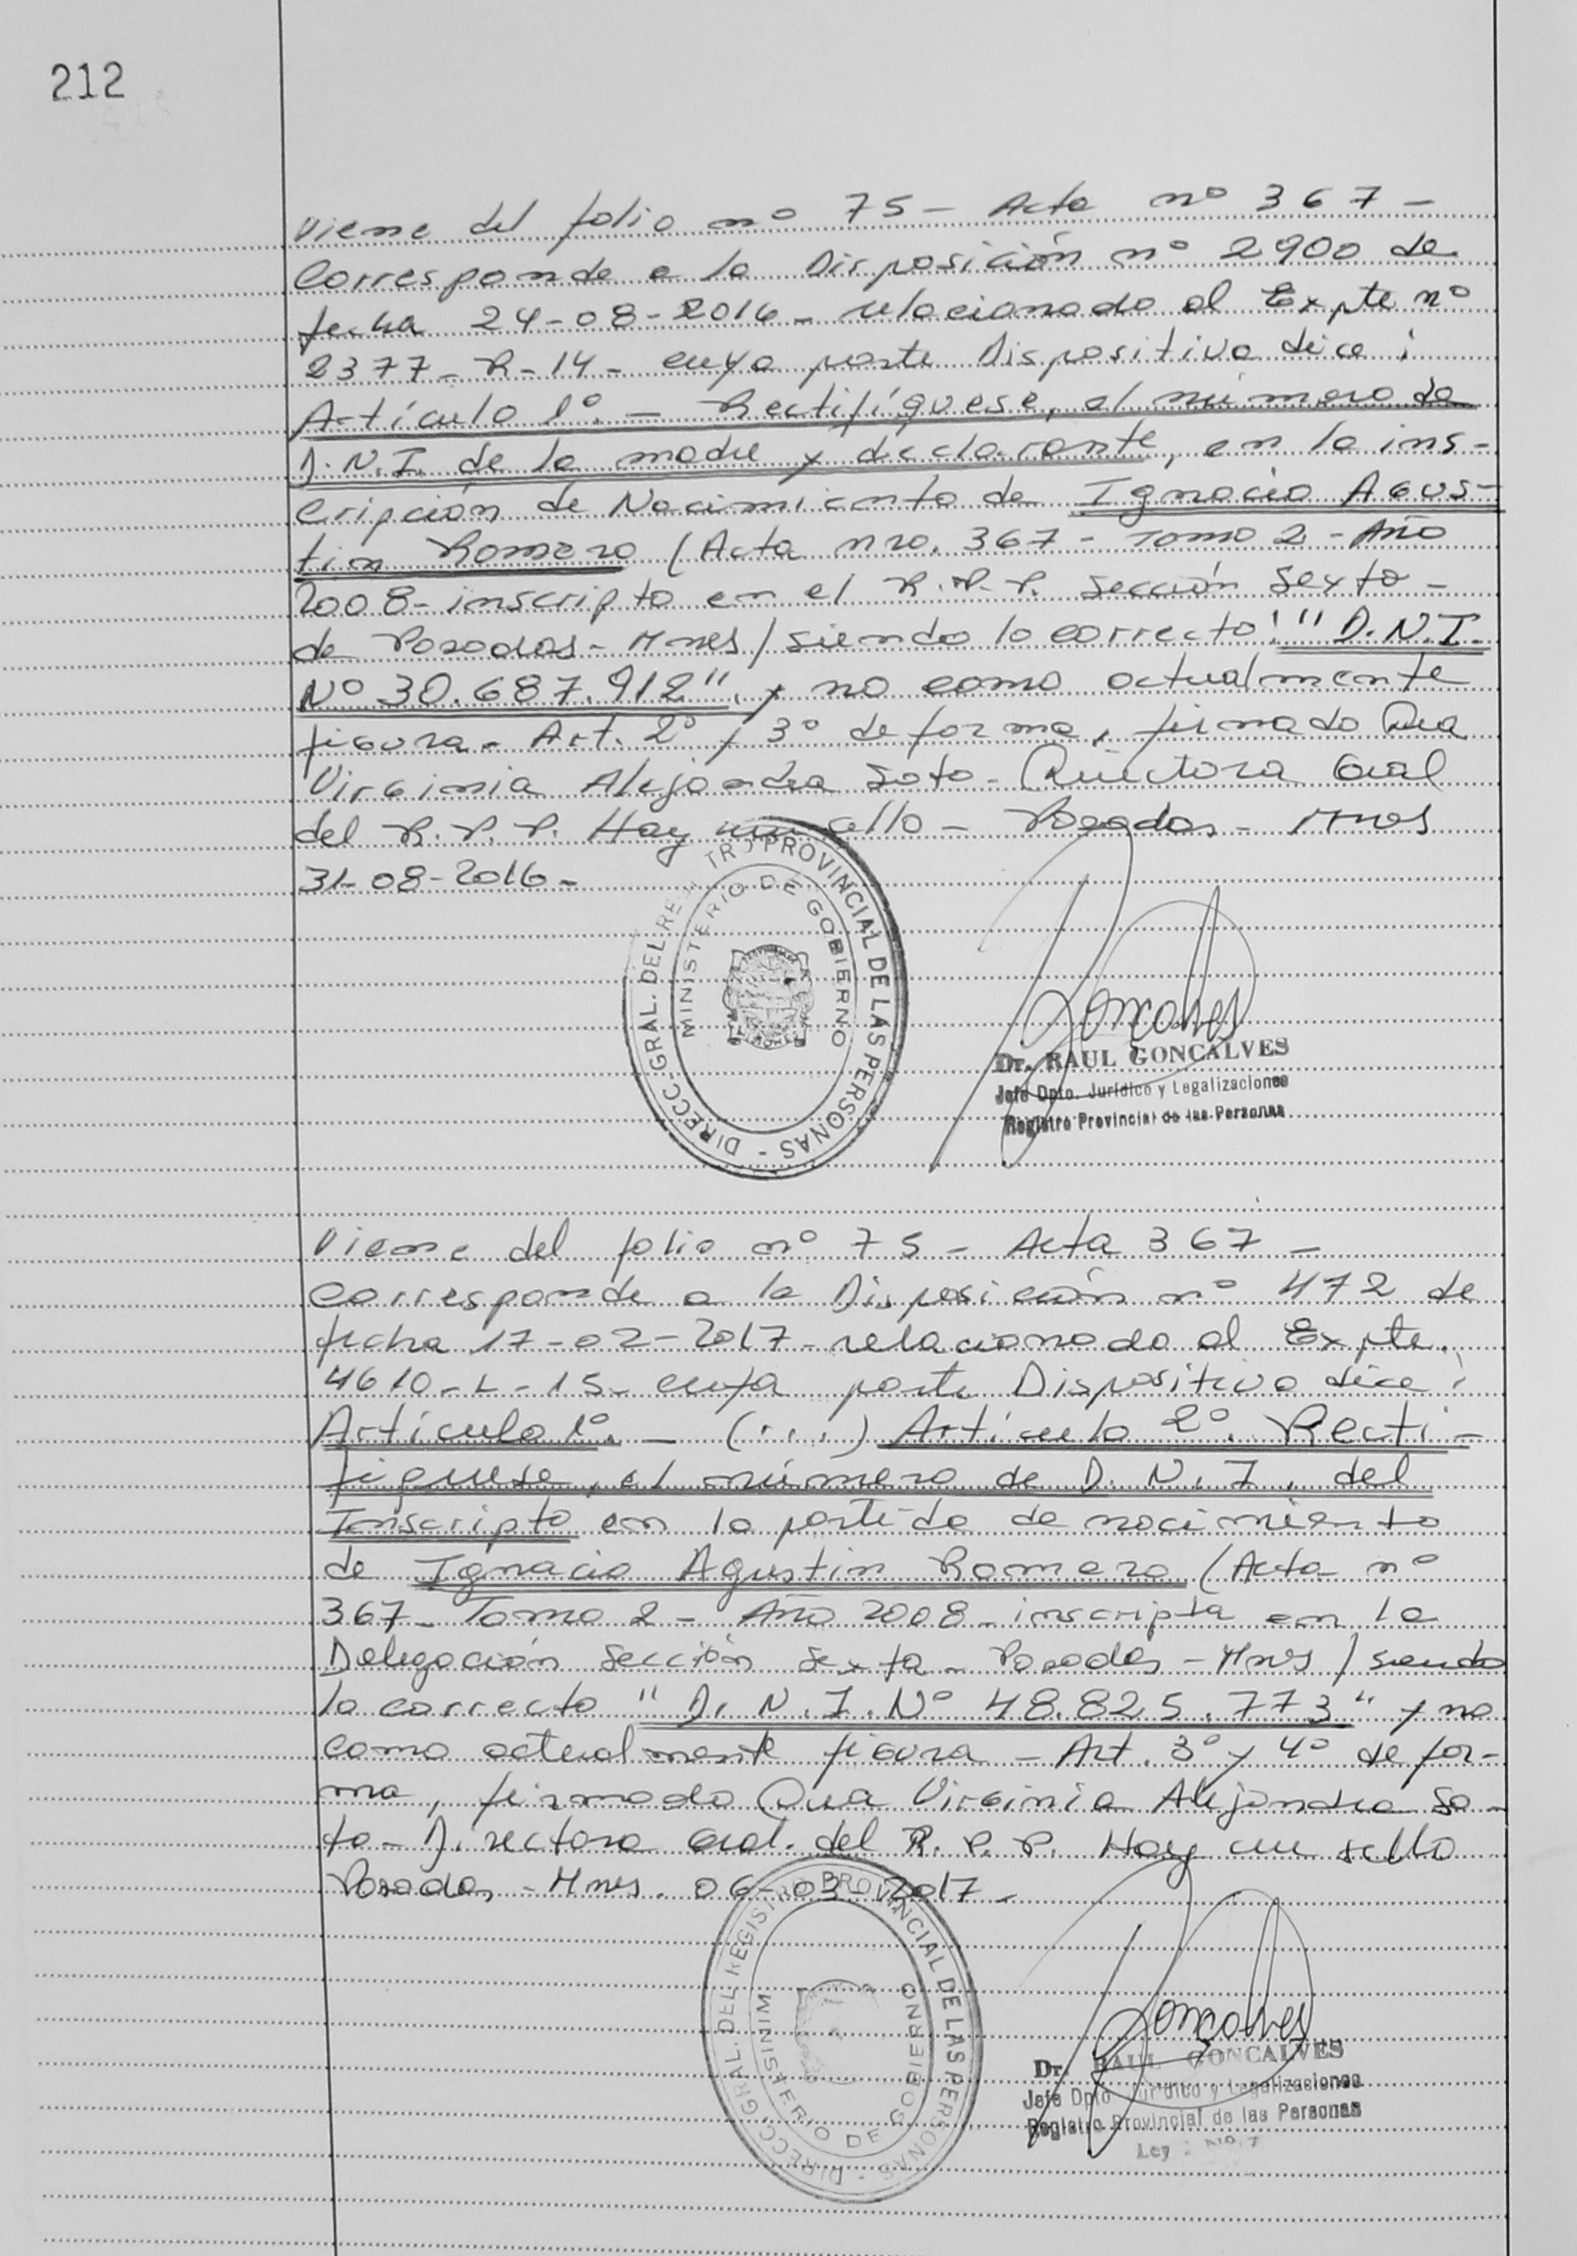 212
Viene del folio nº 75 - Acta nº 367 -
Corresponde a la Disposición nº 2900 de
fecha 24-08-2016 - relacionado al Expte nº
2377 - R - 14 - cuya parte Dispositiva dice:
Artículo 1º. - Rectifíquese, el número de
D.N.I. de la madre y declarante, en la ins-
cripción de Nacimiento de Ignacio Agus-
tin Romero (Acta nro. 367 - Tomo 2 - Año
2008 - inscripto en el R.P.P. Sección Sexta -
de Posadas - Mnes) siendo lo correcto: "D.N.I.
Nº 30.687.912" y no como actualmente
figura - Art. 2º y 3º de forma, firmado Dra
Virginia Alejandra Soto - Directora Gral
del R.P.P. Hay un sello - Posadas - Mnes
31-08-2016 -
DIRECC. GRAL. DEL REGISTRO PROVINCIAL DE LAS PERSONAS -
MINISTERIO DE GOBIERNO
Goncalves
Dr. RAUL GONCALVES
Jefe Dpto. Jurídico y Legalizaciones
Registro Provincial de las Personas
Viene del folio nº 75 - Acta 367 -
Corresponde a la Disposición nº 472 de
fecha 17-02-2017 - relacionado al Expte.
4610 - L - 15 - cuya parte Dispositiva dice:
Artículo 1º. - (...) Artículo 2º. Recti-
fíquese, el número de D.N.I. del
Inscripto en la partida de nacimiento
de Ignacio Agustin Romero (Acta nº
367 - Tomo 2 - Año 2008 - inscripta en la
Delegación Sección Sexta - Posadas - Mnes) siendo
lo correcto "D.N.I. Nº 48.825.773" y no
como actualmente figura - Art. 3º y 4º de for-
ma, firmado Dra Virginia Alejandra So-
to - Directora Gral. del R.P.P. Hay un sello
Posadas - Mnes. 06-03-2017 -
DIRECC. GRAL. DEL REGISTRO PROVINCIAL DE LAS PERSONAS -
MINISTERIO DE GOBIERNO
Goncalves
Dr. RAUL GONCALVES
Jefe Dpto Jurídico y Legalizaciones
Registro Provincial de las Personas
Ley